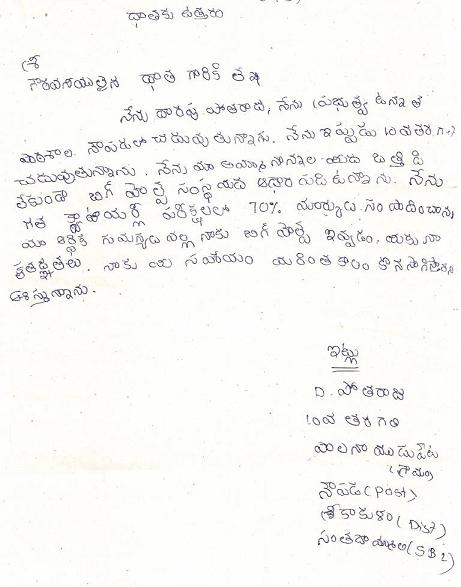 దాతకు ఉత్తరం
శ్రీ
గౌరవనీయులైన దాత గారికి
నేను పోతరాజు, నేను ప్రభుత్వ ఉన్నత
పాఠశాల నౌపడలో చదువుతున్నాను. నేను ఇప్పుడు 10వ తరగతి
చదువుతున్నాను. నేను మా అమ్మా నాన్నల మీద ఒత్తిడి
లేకుండా బిగ్ హెల్ప్ సంస్థ మీద ఆధార పడి ఉన్నాను. నేను
గత పరీక్షలలో 70% మార్కులు సంపాదించాను
మా ఆర్థిక సమస్యల వల్ల నాకు బిగ్ హెల్ప్ ఇవ్వడం, మీకు నా
కృతజ్ఞతలు. నాకు ఈ సహాయం మరింత కాలం కొనసాగిస్తారని
ఆశిస్తున్నాను.
ఇట్లు
D. పోతరాజు
10వ తరగతి
(గ్రామం)
నౌపడ (Post)
శ్రీకాకుళం (Dist)
సంతబొమ్మాళి